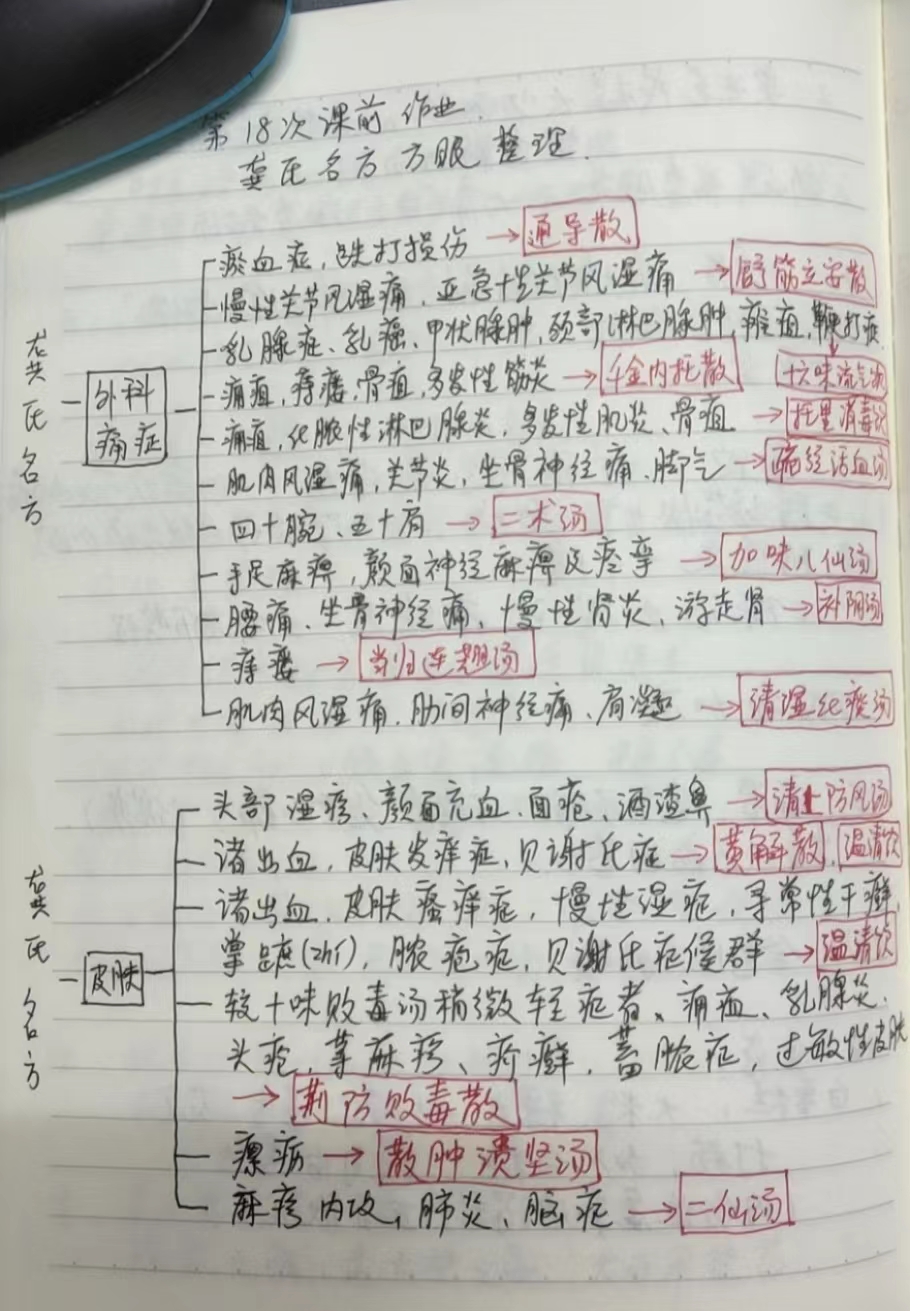 第18次课前作业.
龚氏名方方眼整理.
龚氏名方
外科痛症
瘀血症,跌打损伤 → 通导散
慢性关节风湿痛、亚急性关节风湿痛 → 舒筋立安散
乳腺症、乳癌、甲状腺肿,颈部淋巴腺肿,瘰疽,鞭打症 → 十六味流气饮
痈疽,痔瘘,骨疽,多发性筋炎 → 千金内托散
痈疽,化脓性淋巴腺炎,多发性肌炎、骨疽 → 托里消毒饮
肌肉风湿痛,关节炎,坐骨神经痛、脚气 → 疏经活血汤
四十腕、五十肩 → 二术汤
手足麻痹,颜面神经麻痹及痉挛 → 加味八仙汤
腰痛、坐骨神经痛、慢性肾炎、游走肾 → 补阴汤
痔瘘 → 当归连翘汤
肌肉风湿痛、肋间神经痛、肩凝 → 清湿化痰汤
龚氏名方
皮肤
头部湿疹、颜面充血、面疮、酒渣鼻 → 清上防风汤
诸出血,皮肤发痒症,贝谢氏症 → 黄解散、温清饮
诸出血,皮肤瘙痒症,慢性湿症,寻常性干癣,
掌蹠(zhí),脓疱症,贝谢氏症候群 → 温清饮
较十味败毒汤稍微轻症者、痈疽、乳腺炎、
头疮,荨麻疹、疥癣,蓄脓症,过敏性皮肤
→ 荆防败毒散
瘰疬 → 散肿溃坚汤
麻疹内攻,肺炎、脑症 → 二仙汤